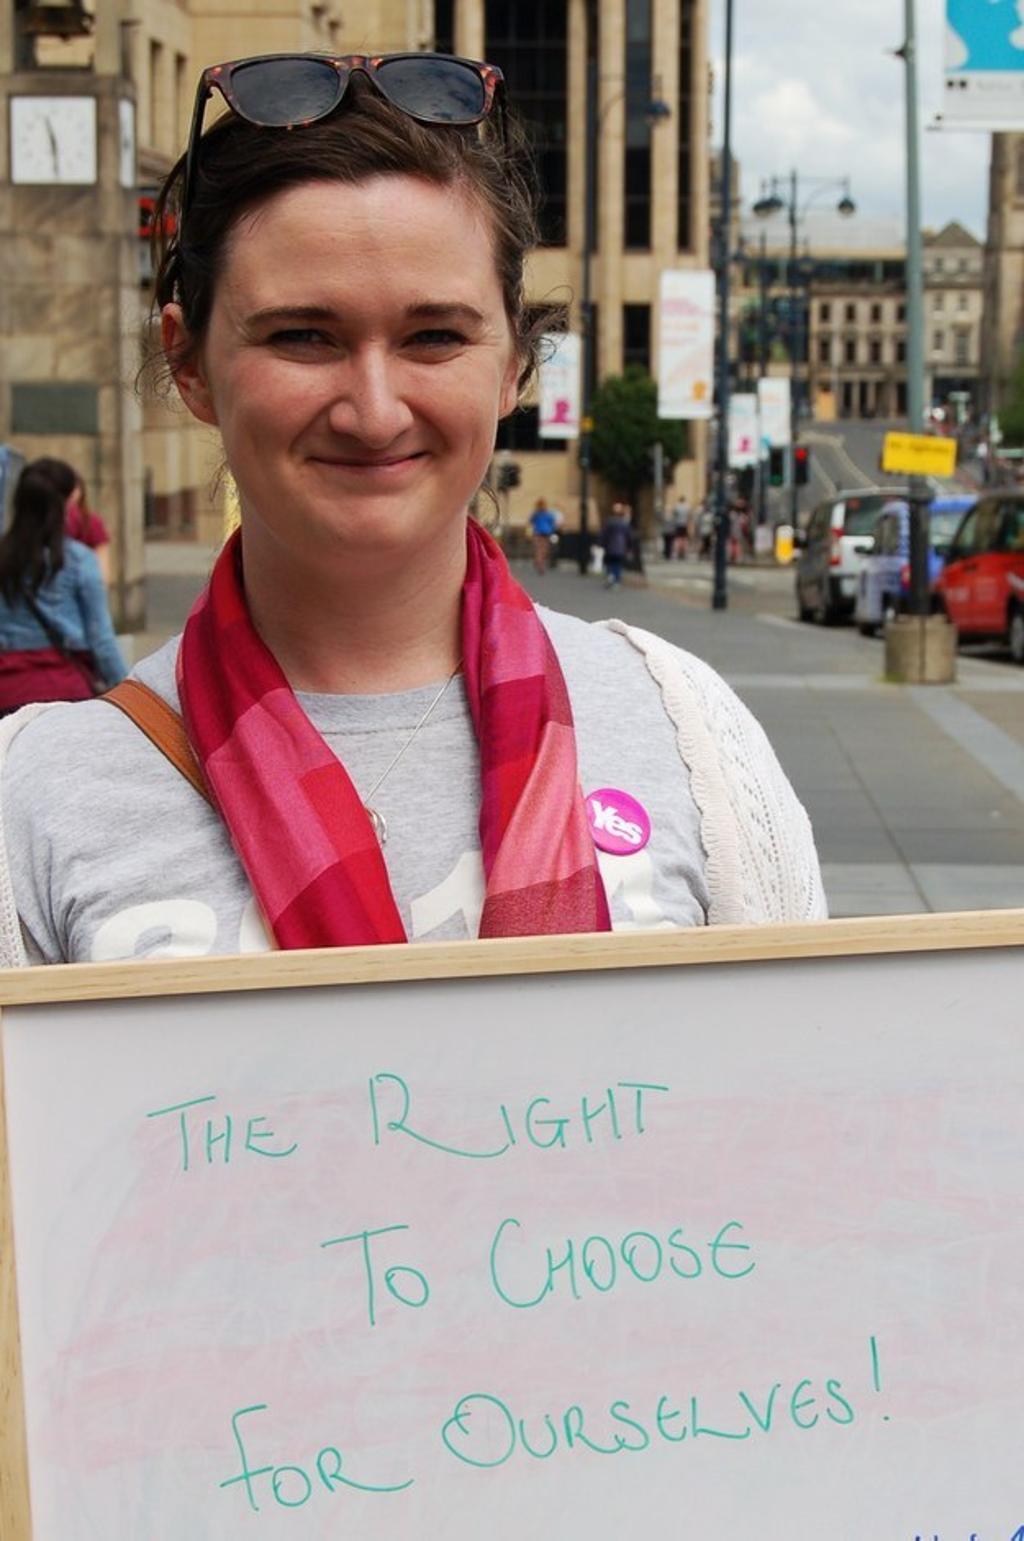 Yes
THE RIGHT
TO CHOOSE
FOR OURSELVES!